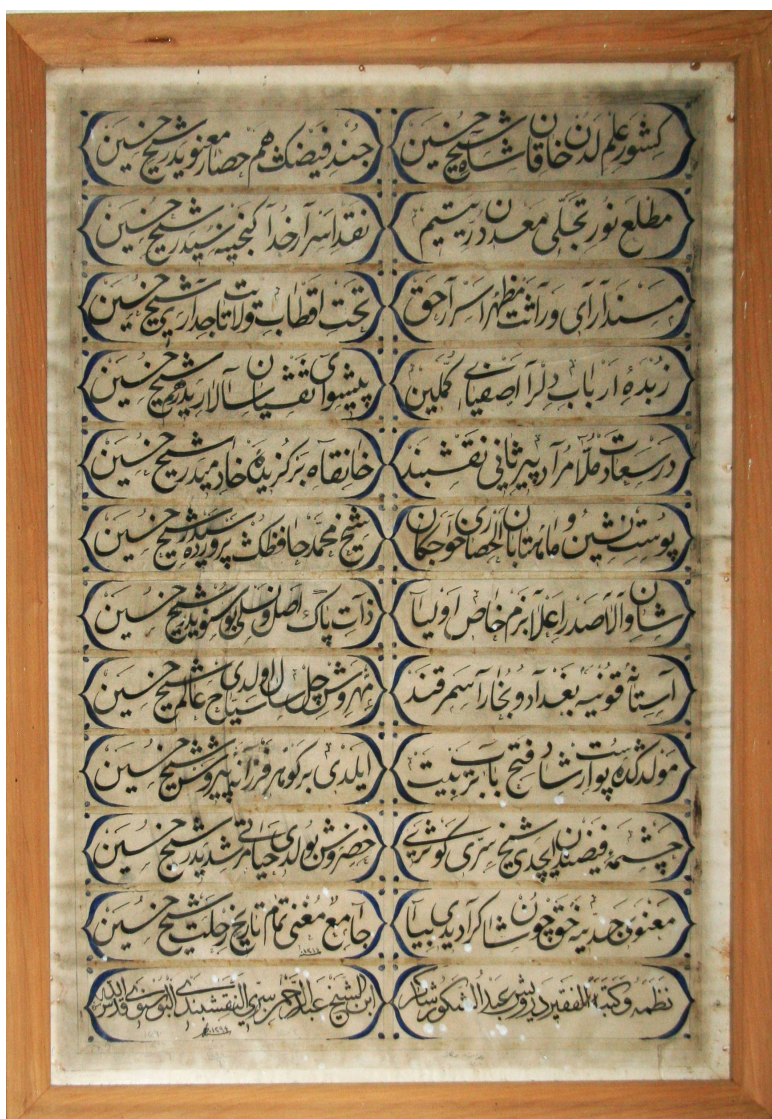 کشور علم لدن خاقان شاه شیخ حسین جند فیضک هم حصار معنویدر شیخ حسین
مطلع نور تجلی معدن در یتیم نقد اسرار خدا گنجینه سیدر شیخ حسین
مسند آرای وراثت مظهر اسرار حق تخت اقطاب ولایت تاجداریدر شیخ حسین
زبدهٔ ارباب دلرا اصفیای کملین پیشوای نقشیان سالاریدر شیخ حسین
در سعادت ملا مراد پیر ثانی نقشبند خانقاه برکزیده خادمیدر شیخ حسین
پوست نشین و ماهتابان الحصاری خواجکان شیخ محمد حافظک پرورده سیدر شیخ حسین
شان والا صدر اعلا بزم خاص اولیا ذات پاک اصل و نسلی بوسنویدر شیخ حسین
آستانه قونیه بغداد و بخارا سمرقند مهروش چل سال اولدی سیاح عالم شیخ حسین
مولد کده پوست ارشاد فتح باب تربیت ایلدی بر کوهر فرزانه پیروش شیخ حسین
چشمهٔ فیضندن ایچدی شیخ سری کوثری خضروش بولدی حیاتی مرشدیدر شیخ حسین
معنون جمدیه خق چون شاکرا دیدی بیا جامع مغنی تمام تاریخ رحلت شیخ حسین
نظمه و کتبه الفقیر درویش عبد الشکور شاکر ابن الشیخ عبد الرحمن سری النقشبندی البوسنوی